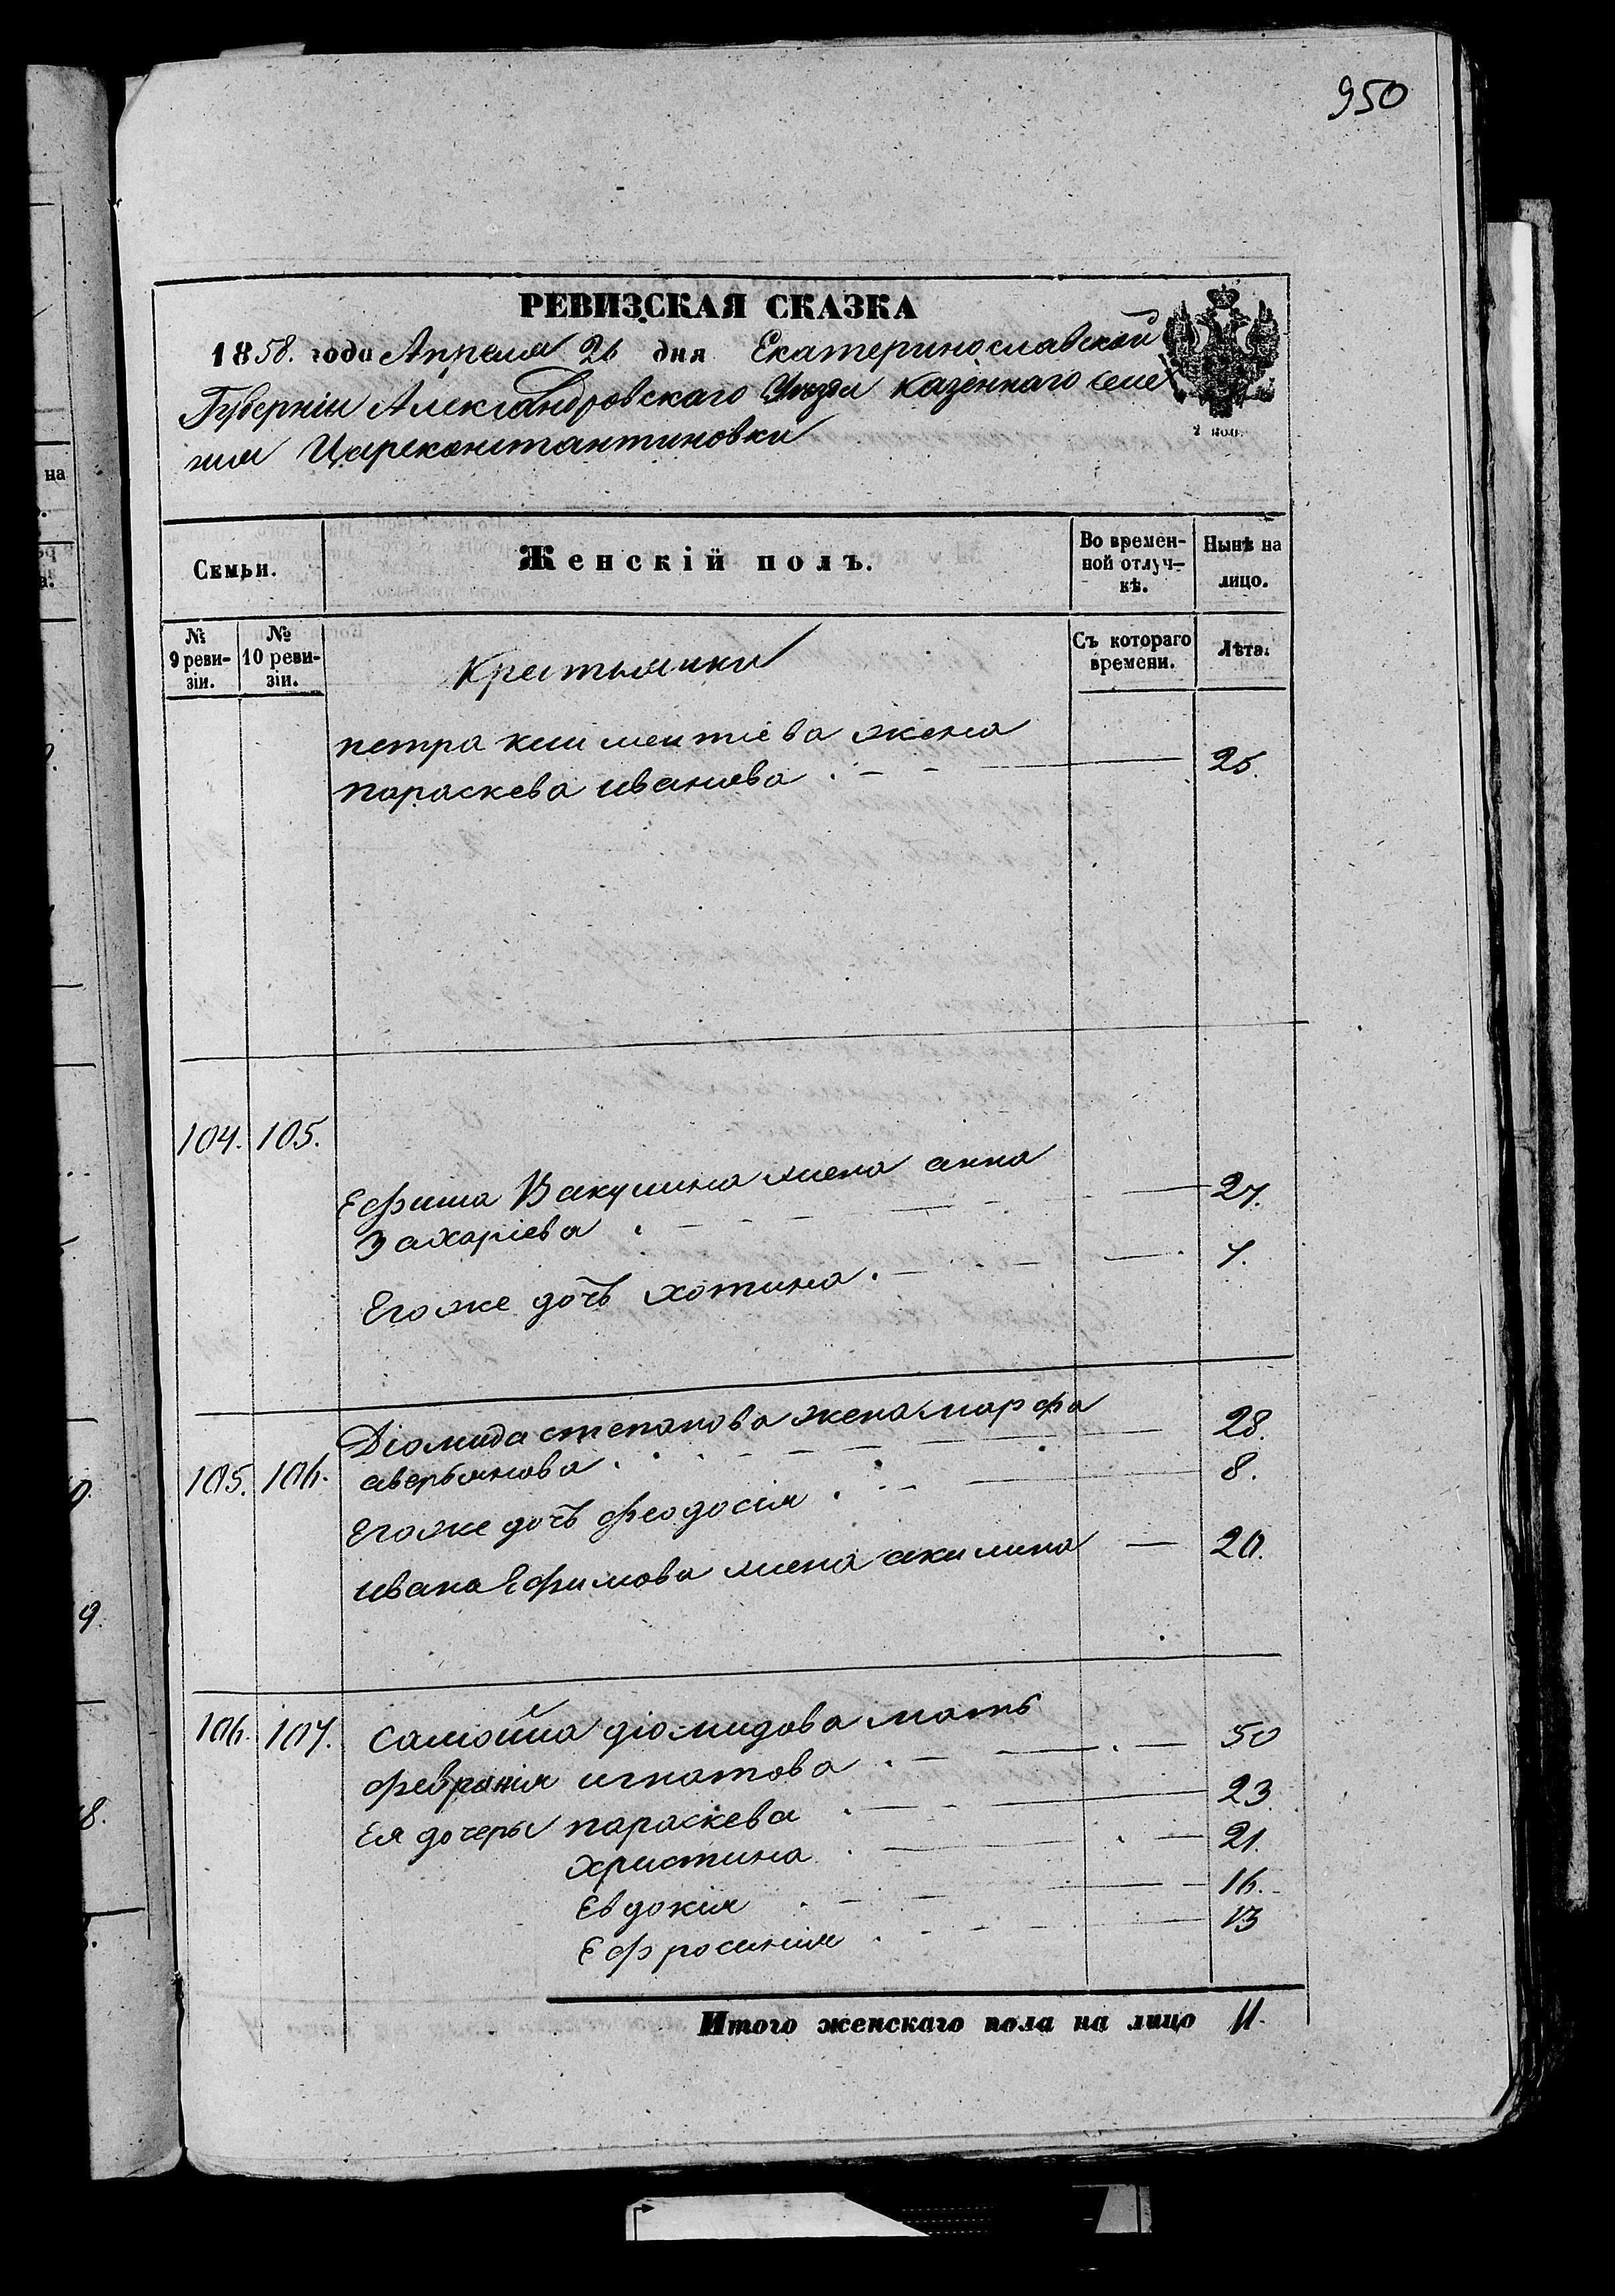 950
РЕВИЗСКАЯ СКАЗКА
1858. года Апреля 26 дня Екатеринославской
Губерніи Александровскаго Уезда казеннаго селе
нія Цареконстантиновки
2 коп.
Семьи.
Женскій полъ.
Во времен-
ной отлуч-
кѣ.
Нынѣ на
лицо.
№
9 реви-
зіи.
№
10 реви-
зіи.
Крестьянки
Съ котораго
времени.
Лѣта.
петра климентіева жена
параскева иванова . 25.
104. 105.
Ефима Вакулина жена анна
Захаріева . 27.
Егоже дочь хотина. 7.
105. 106.
Діомида степанова жена марфа
аверьянова . 28.
Егоже дочь феодосія . 8.
ивана Ефимова жена акилина 20.
106. 107. самойла діомидова мать
февронія игнатова . 50
Ея дочеры параскева . 23
христина . 21.
Евдокія . 16.
Ефросинія . 13
Итого женскаго пола на лицо 11.
на
9.
8.